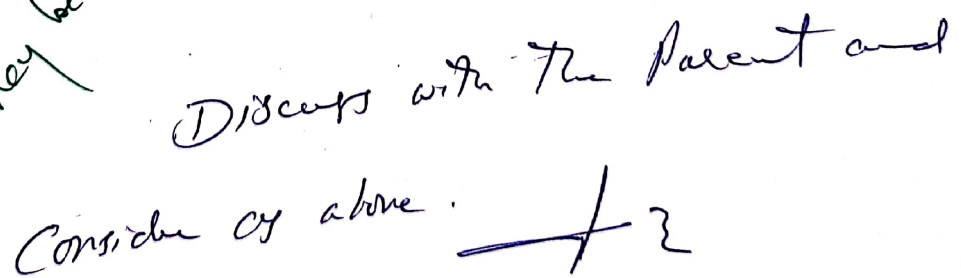 Discuss with the Parent and
Consider as above.